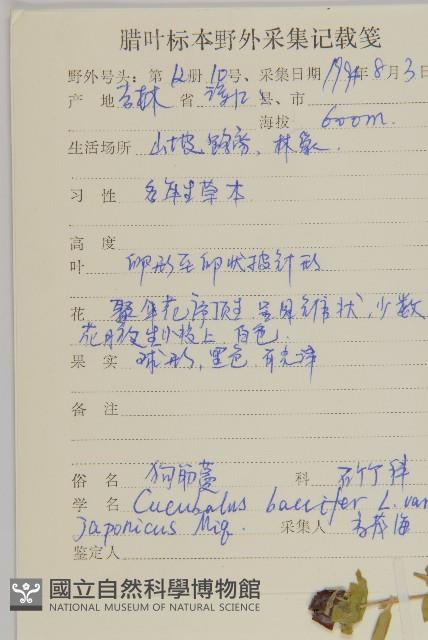 腊叶标本野外采集记载笺
野外号头：第12册10号、采集日期1991年8月3日
产 地 吉林 省 县、市
海拔 600m.
生活场所 山坡路旁、林缘.
习 性 多年生草本
高 度
叶 卵形至卵状披针形
花 聚伞花序顶生 呈圆锥状,少数
花腋生小枝上,白色.
果 实 球形,黑色,有光泽
备 注
俗 名 狗筋蔓 科 石竹科
学 名 Cucubalus baccifer L. var
Japonicus Miq. 采集人
鉴定人
國立自然科學博物館
NATIONAL MUSEUM OF NATURAL SCIENCE